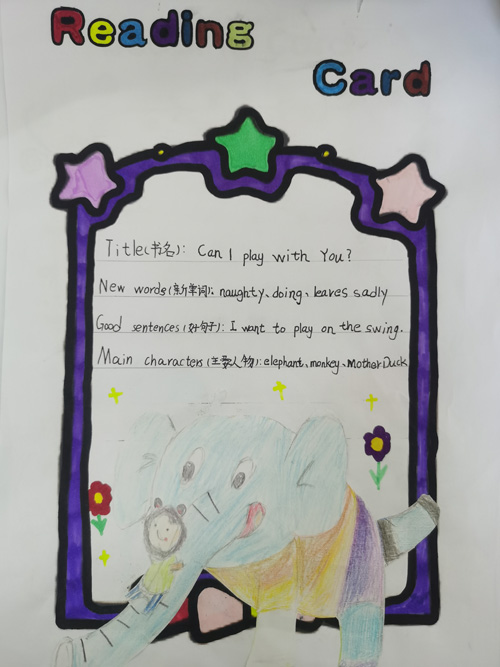 Reading
Card
Title(书名): Can I play with You?
New words(新单词): naughty、doing、leaves sadly
Good sentences(好句子): I want to play on the swing.
Main characters(主要人物): elephant、monkey、Mother Duck